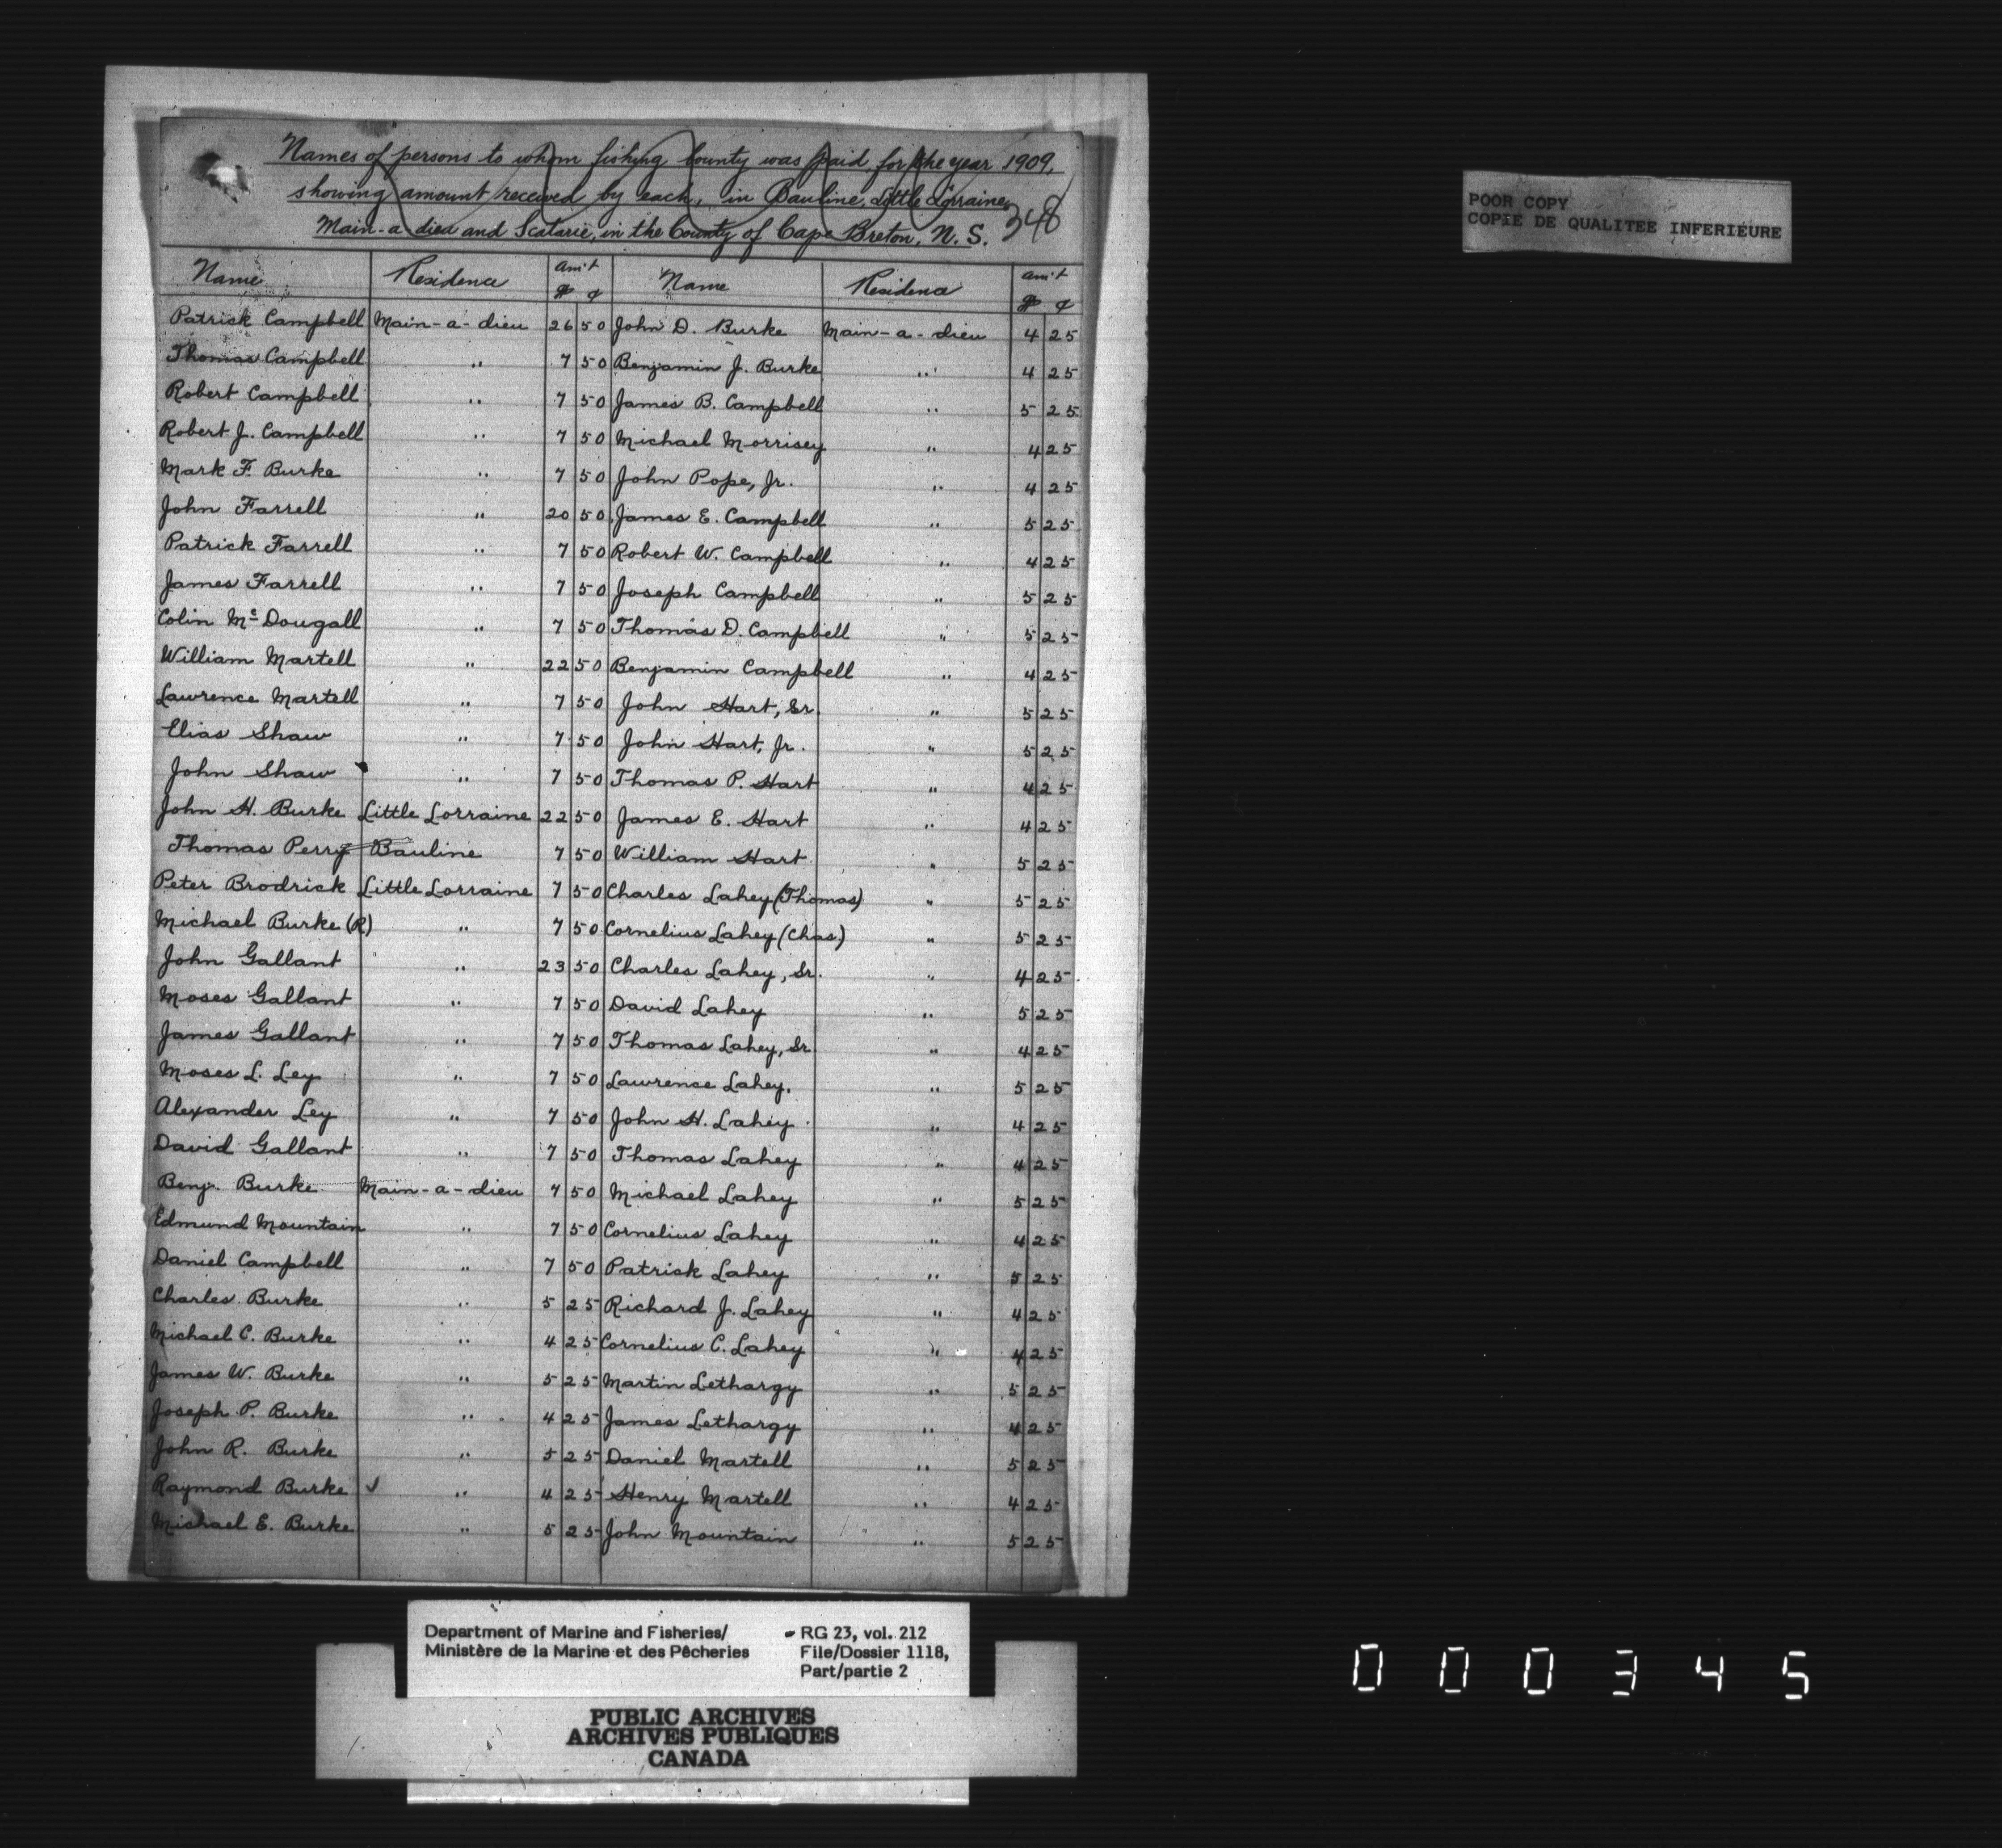 Names of persons to whom fishing bounty was paid, for the year 1909,
showing amount received by each, in Bauline, Little Lorraine,
Main-a-dieu and Scatarie, in the County of Cape Breton, N. S. 348
Name Residence Am't $ ¢ Name Residence Am't $ ¢
Patrick Campbell Main-a-dieu 26 50 John D. Burke Main-a-dieu 4 25
Thomas Campbell " 7 50 Benjamin J. Burke " 4 25
Robert Campbell " 7 50 James B. Campbell " 5 25
Robert J. Campbell " 7 50 Michael Morrisey " 4 25
Mark F. Burke " 7 50 John Pope, Jr. " 4 25
John Farrell " 20 50 James E. Campbell " 5 25
Patrick Farrell " 7 50 Robert W. Campbell " 4 25
James Farrell " 7 50 Joseph Campbell " 5 25
Colin Mc Dougall " 7 50 Thomas D. Campbell " 5 25
William Martell " 22 50 Benjamin Campbell " 4 25
Lawrence Martell " 7 50 John Hart, Sr. " 5 25
Elias Shaw " 7 50 John Hart, Jr. " 5 25
John Shaw " 7 50 Thomas P. Hart " 4 25
John H. Burke Little Lorraine 22 50 James E. Hart " 4 25
Thomas Perry Bauline 7 50 William Hart " 5 25
Peter Brodrick Little Lorraine 7 50 Charles Lahey (Thomas) " 5 25
Michael Burke (R) " 7 50 Cornelius Lahey (Chas.) " 5 25
John Gallant " 23 50 Charles Lahey, Sr. " 4 25
Moses Gallant " 7 50 David Lahey " 5 25
James Gallant " 7 50 Thomas Lahey, Sr. " 4 25
Moses L. Ley " 7 50 Lawrence Lahey. " 5 25
Alexander Ley " 7 50 John H. Lahey " 4 25
David Gallant " 7 50 Thomas Lahey " 4 25
Benj. Burke Main-a-dieu 7 50 Michael Lahey " 5 25
Edmund Mountain " 7 50 Cornelius Lahey " 4 25
Daniel Campbell " 7 50 Patrick Lahey " 5 25
Charles Burke " 5 25 Richard J. Lahey " 4 25
Michael C. Burke " 4 25 Cornelius C. Lahey " 4 25
James W. Burke " 5 25 Martin Lethargy " 5 25
Joseph P. Burke " 4 25 James Lethargy " 4 25
John R. Burke " 5 25 Daniel Martell " 5 25
Raymond Burke ✓ " 4 25 Henry Martell " 4 25
Michael E. Burke " 5 25 John Mountain " 5 25
POOR COPY
COPIE DE QUALITEE INFERIEURE
Department of Marine and Fisheries/ RG 23, vol. 212
Ministère de la Marine et des Pêcheries File/Dossier 1118,
Part/partie 2
PUBLIC ARCHIVES
ARCHIVES PUBLIQUES
CANADA
000345